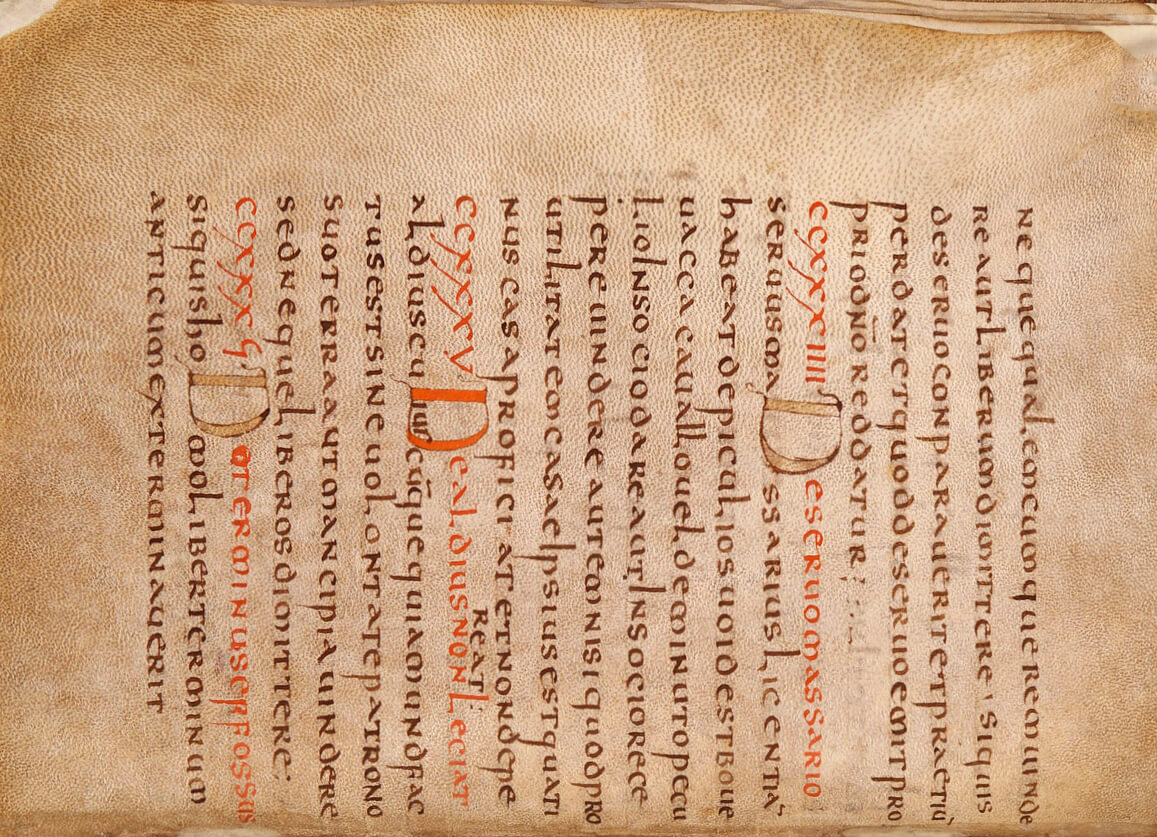 neque qualemcumque rem uinde
re aut liberum dimittere · si quis
de seruo conparauerit et praetiū
perdat et quod de seruo emit pro
prio dño reddatur ;
CCXXXIIII De seruo massario
seruus massarius licentiā
habeat de piculio suo id est boue
uacca cauallo uel de minuto pecu
lio In socio dare aut In socio rece
pere uindere autem nisi quod pro
utilitatem casae Ipsius est quati
nus casa proficiat et non depe
reat :
CCXXXV De aldius non leciat
aldius cuiuscūque qui amund fac
tus est sine uolontate patrono
suo terra aut mancipia uindere
sed neque liberos dimittere :
CCXXXϚ· De terminus effossus
si quis homo liber terminum
anticum exterminauerit